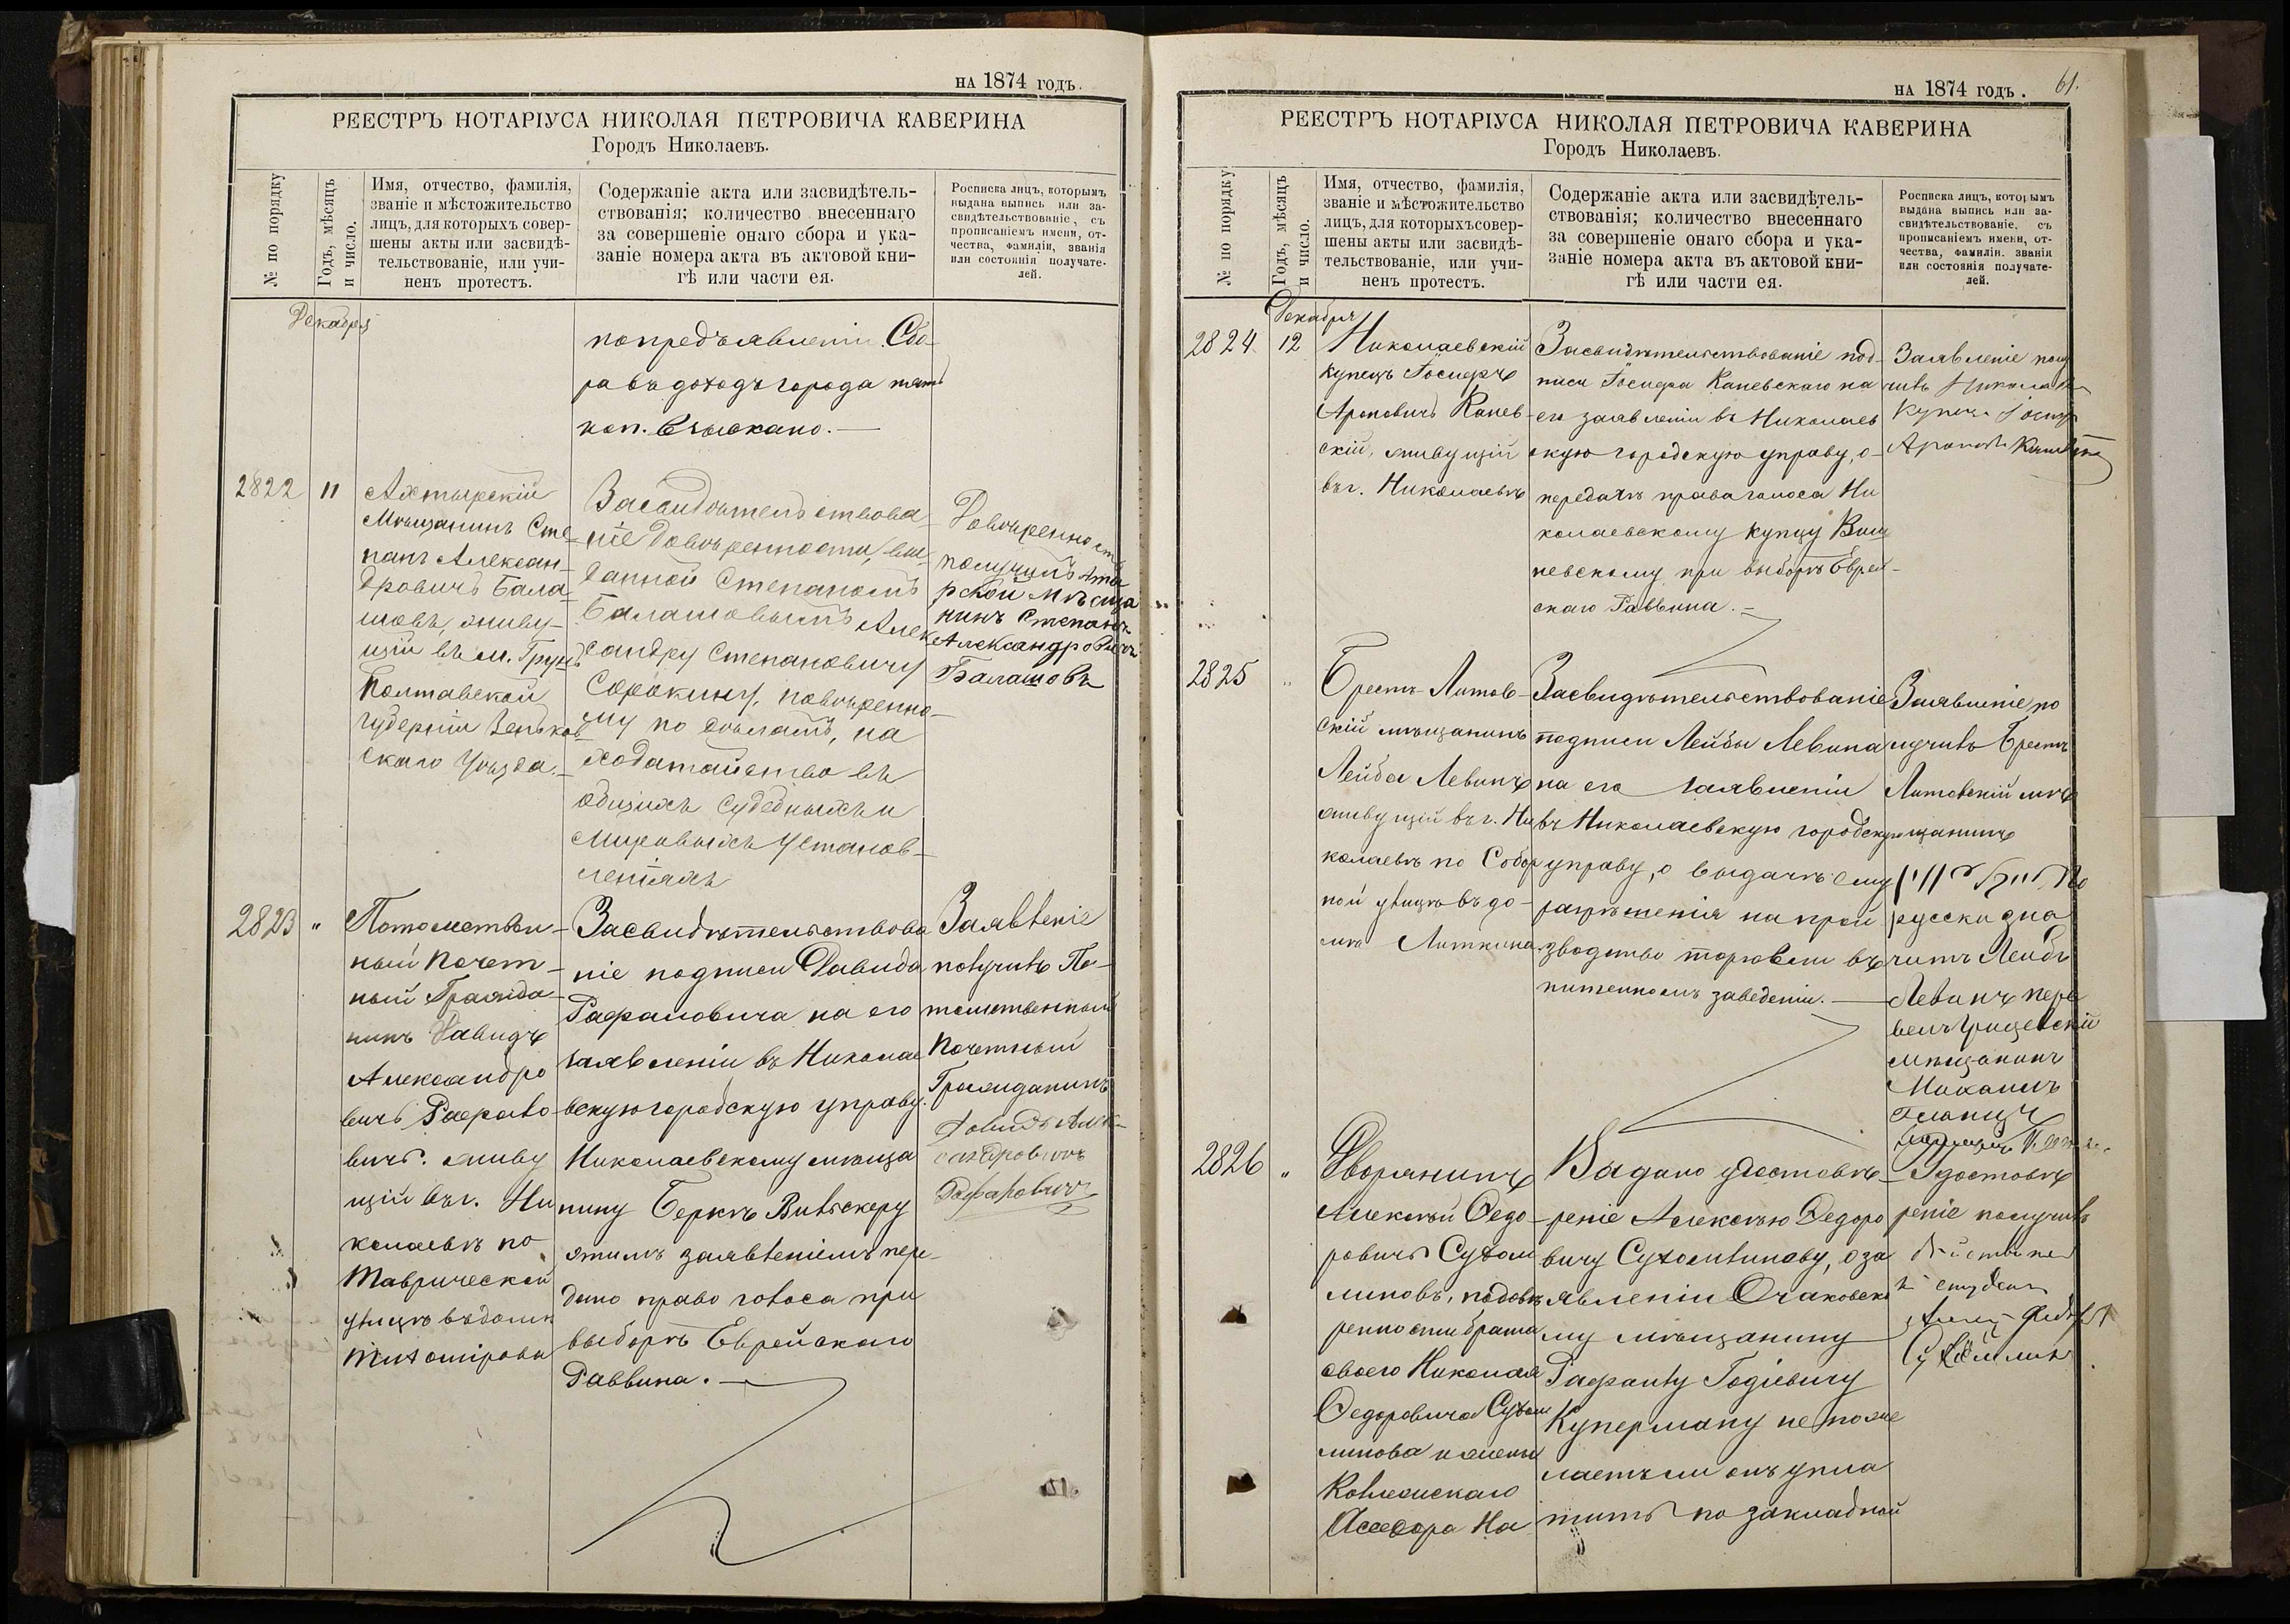 на 1874 годъ.
РЕЕСТРЪ НОТАРІУСА НИКОЛАЯ ПЕТРОВИЧА КАВЕРИНА
Городъ Николаевъ.
№ по порядку
Годъ, мѣсяцъ
и число.
Имя, отчество, фамилія,
званіе и мѣстожительство
лицъ, для которыхъ совер-
шены акты или засвидѣ-
тельствованіе, или учи-
ненъ протестъ.
Содержаніе акта или засвидѣтель-
ствованія; количество внесеннаго
за совершеніе онаго сбора и ука-
заніе номера акта въ актовой кни-
гѣ или части ея.
Росписка лицъ, которымъ
выдана выпись или за-
свидѣтельствованіе, съ
прописаніемъ имени, от-
чества, фамиліи, званія
или состоянія получате-
лей.
Декабря
по предъявленіи. Сбо-
ра въ доходъ города пять
коп. взыскано.—
2822
11
Ахтырскій
Мѣщанинъ Сте-
панъ Алексан-
дровичъ Бала-
шовъ, живу-
щій въ м. Грунь
Полтавской
губерніи Зеньков-
скаго Уѣзда.
Засвидѣтельствова-
ніе довѣренности, вы-
данной Степаномъ
Балашовымъ Алек-
сандру Степановичу
Сорокину, повѣренно-
му по дѣламъ, на
ходатайство въ
общихъ судебныхъ и
Мировыхъ Установ-
леніяхъ
Довѣренность
получилъ
Мѣща
нинъ Степанъ
Александровичъ
Балашовъ
2823
"
Потомствен-
ный Почет-
ный Гражда-
нинъ Давидъ
Александро
вичъ Рафало-
вичъ. живу
щій въ г. Ни
колаевѣ по
Таврической
улицѣ въ домѣ
Засвидѣтельствова
ніе подписи Давида
Рафаловича на его
заявленіи въ Николае
вскую городскую управу.
Николаевскому мѣща
нину Беркѣ
этимъ заявленіемъ пере-
дано право голоса при
выборѣ Еврейскаго
Раввина.—
Заявленіе
получилъ По-
томственный
Почетный
Гражданинъ
Давидъ Алек-
сандровичъ
Рафаловичъ
на 1874 годъ.
61.
РЕЕСТРЪ НОТАРІУСА НИКОЛАЯ ПЕТРОВИЧА КАВЕРИНА
Городъ Николаевъ.
№ по порядку
Годъ, мѣсяцъ
и число.
Имя, отчество, фамилія,
званіе и мѣстожительство
лицъ, для которыхъ совер-
шены акты или засвидѣ-
тельствованіе, или учи-
ненъ протестъ.
Содержаніе акта или засвидѣтель-
ствованія; количество внесеннаго
за совершеніе онаго сбора и ука-
заніе номера акта въ актовой кни-
гѣ или части ея.
Росписка лицъ, которымъ
выдана выпись или за-
свидѣтельствованіе, съ
прописаніемъ имени, от-
чества, фамиліи, званія
или состоянія получате-
лей.
Декабря
2824
12
Николаевскій
купецъ Іосифъ
Ароновичъ Канев-
скій, живущій
въ г. Николаевѣ
Засвидѣтельствованіе под-
писи Іосифа Каневскаго на
его заявленіи въ Николаев
скую городскую управу, о-
передачѣ права голоса Ни
колаевскому купцу
при выборѣ Еврей-
скаго Раввина.—
Заявленіе полу
чилъ
2825
"
Брестъ-Литов-
скій мѣщанинъ
Лейба Левинъ
живущій въ г. Ни
колаевѣ по Собор
ной улицѣ въ до-
мѣ Литкина
Засвидѣтельствованіе
подписи Лейбы Левина
на его заявленіи
въ Николаевскую городскую
управу, о выдачѣ ему
разрѣшенія на прои
зводство торговли въ
питейномъ заведеніи.—
Заявленіе по
лучилъ Брестъ
Литовскій мѣ
щанинъ
По
русски зна
читъ Лейба
Левинъ пере
велъ
мѣщанинъ
2826
"
Дворянинъ
Алексѣй Федо-
ровичъ Сухом
линовъ, по довѣ
ренности брата
своего Николая
Федоровича Сухом
линова и жены
Коллежскаго
Асессора На
Выдано удостовѣ-
реніе Алексѣю Федоро
вичу Сухомлинову, о за
явленіи Очаковско
му мѣщанину
Рафаилу Годіевичу
Куперману не поже
лаетъ ли онъ упла
тить по закладной
Удостовѣ
реніе получилъ